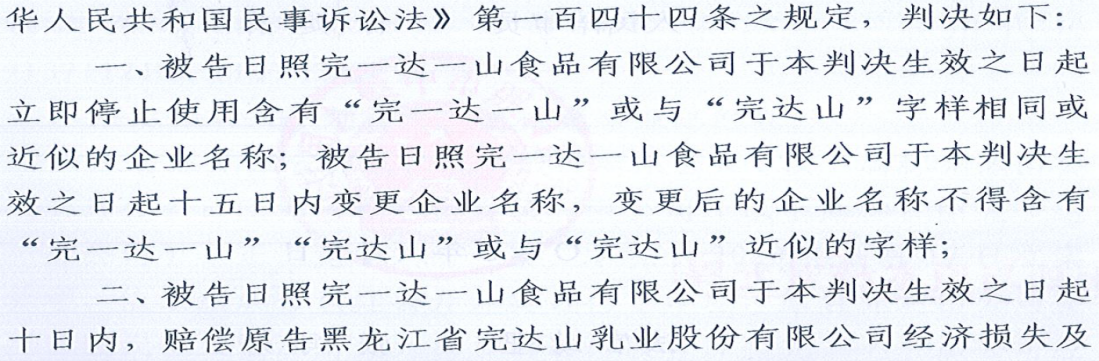 华人民共和国民事诉讼法》第一百四十四条之规定，判决如下：
一、被告日照完一达一山食品有限公司于本判决生效之日起
立即停止使用含有“完一达一山”或与“完达山”字样相同或
近似的企业名称；被告日照完一达一山食品有限公司于本判决生
效之日起十五日内变更企业名称，变更后的企业名称不得含有
“完一达一山”“完达山”或与“完达山”近似的字样；
二、被告日照完一达一山食品有限公司于本判决生效之日起
十日内，赔偿原告黑龙江省完达山乳业股份有限公司经济损失及